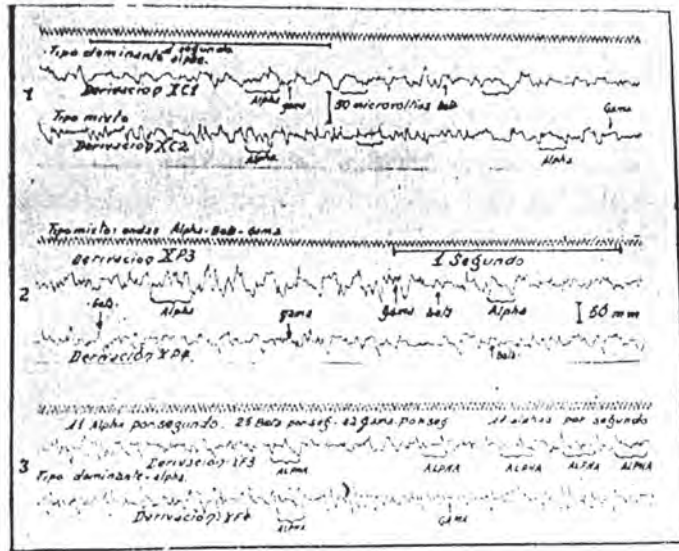 1 segundo
Tipo dominante alpha.
1
Derivacion XC1
Alpha gama 50 microvoltios beta
Gama
Tipo mixto
Derivacion XC2
Alpha Alpha
Tipo mixto: ondas Alpha-Beta-gama
Derivacion XP3 1 Segundo
2
Beta. Alpha gama gama beta Alpha 50 mm
Derivación XP4 Beta.
11 Alpha por segundo. 25 Beta por seg. 43 Gama por seg 11 alphas por segundo
3
Derivacion XF3 ALPHA ALPHA ALPHA ALPHA ALPHA
Tipo dominante-alpha.
Derivación XF4 ALPHA GAMA